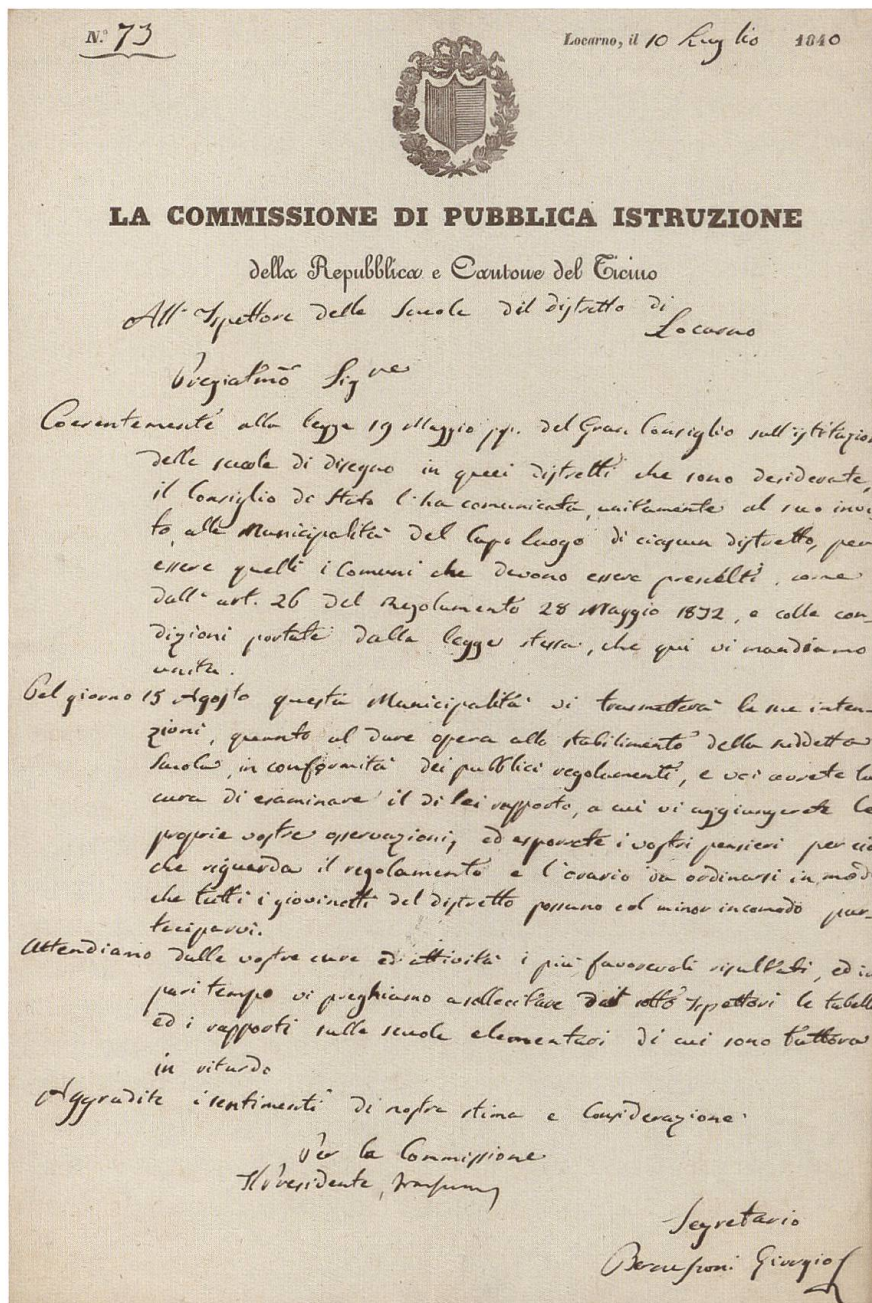 N.° 73
Locarno, il 10 Luglio 1840
LA COMMISSIONE DI PUBBLICA ISTRUZIONE
della Repubblica e Cantone del Ticino
All' Ispettore delle Scuole del distretto di
Locarno
Pregiatmo Sigre
Coerentemente alla legge 19 Maggio pp. del Gran Consiglio sull'istituzion
delle scuole di disegno in quei distretti che sono desiderate,
il Consiglio di Stato l'ha comunicata, unitamente al suo invi-
to, alle Municipalità del Capo luogo di ciascun distretto, per
essere quelli i Comuni che devono essere prescelti, come
dall' art. 26 del Regolamento 28 Maggio 1832, e colle con-
dizioni portate dalla legge stessa, che qui vi mandiamo
unita.
Pel giorno 15 Agosto questa Municipalità vi trasmetterà le sue inten-
zioni, quanto al dare opera allo stabilimento della suddetta
Scuola, in conformità dei pubblici regolamenti, e voi avrete la
cura di esaminare il di lei rapporto, a cui vi aggiungerete le
proprie vostre osservazioni, ed esporrete i vostri pensieri per ciò
che riguarda il regolamento e l'orario da ordinarsi in mod
che tutti i giovinetti del distretto possano col minor incomodo par-
teciparvi.
Attendiamo dalle vostre cure ed attività i più favorevoli risultati, ed in
pari tempo vi preghiamo a sollecitare dai sotto Ispettori le tabelle
ed i rapporti sulle scuole elementari di cui sono tuttora
in ritardo
Aggradite i sentimenti di nostra stima e Considerazione.
Per la Commissione
Il Presidente,
Segretario
Giorgio